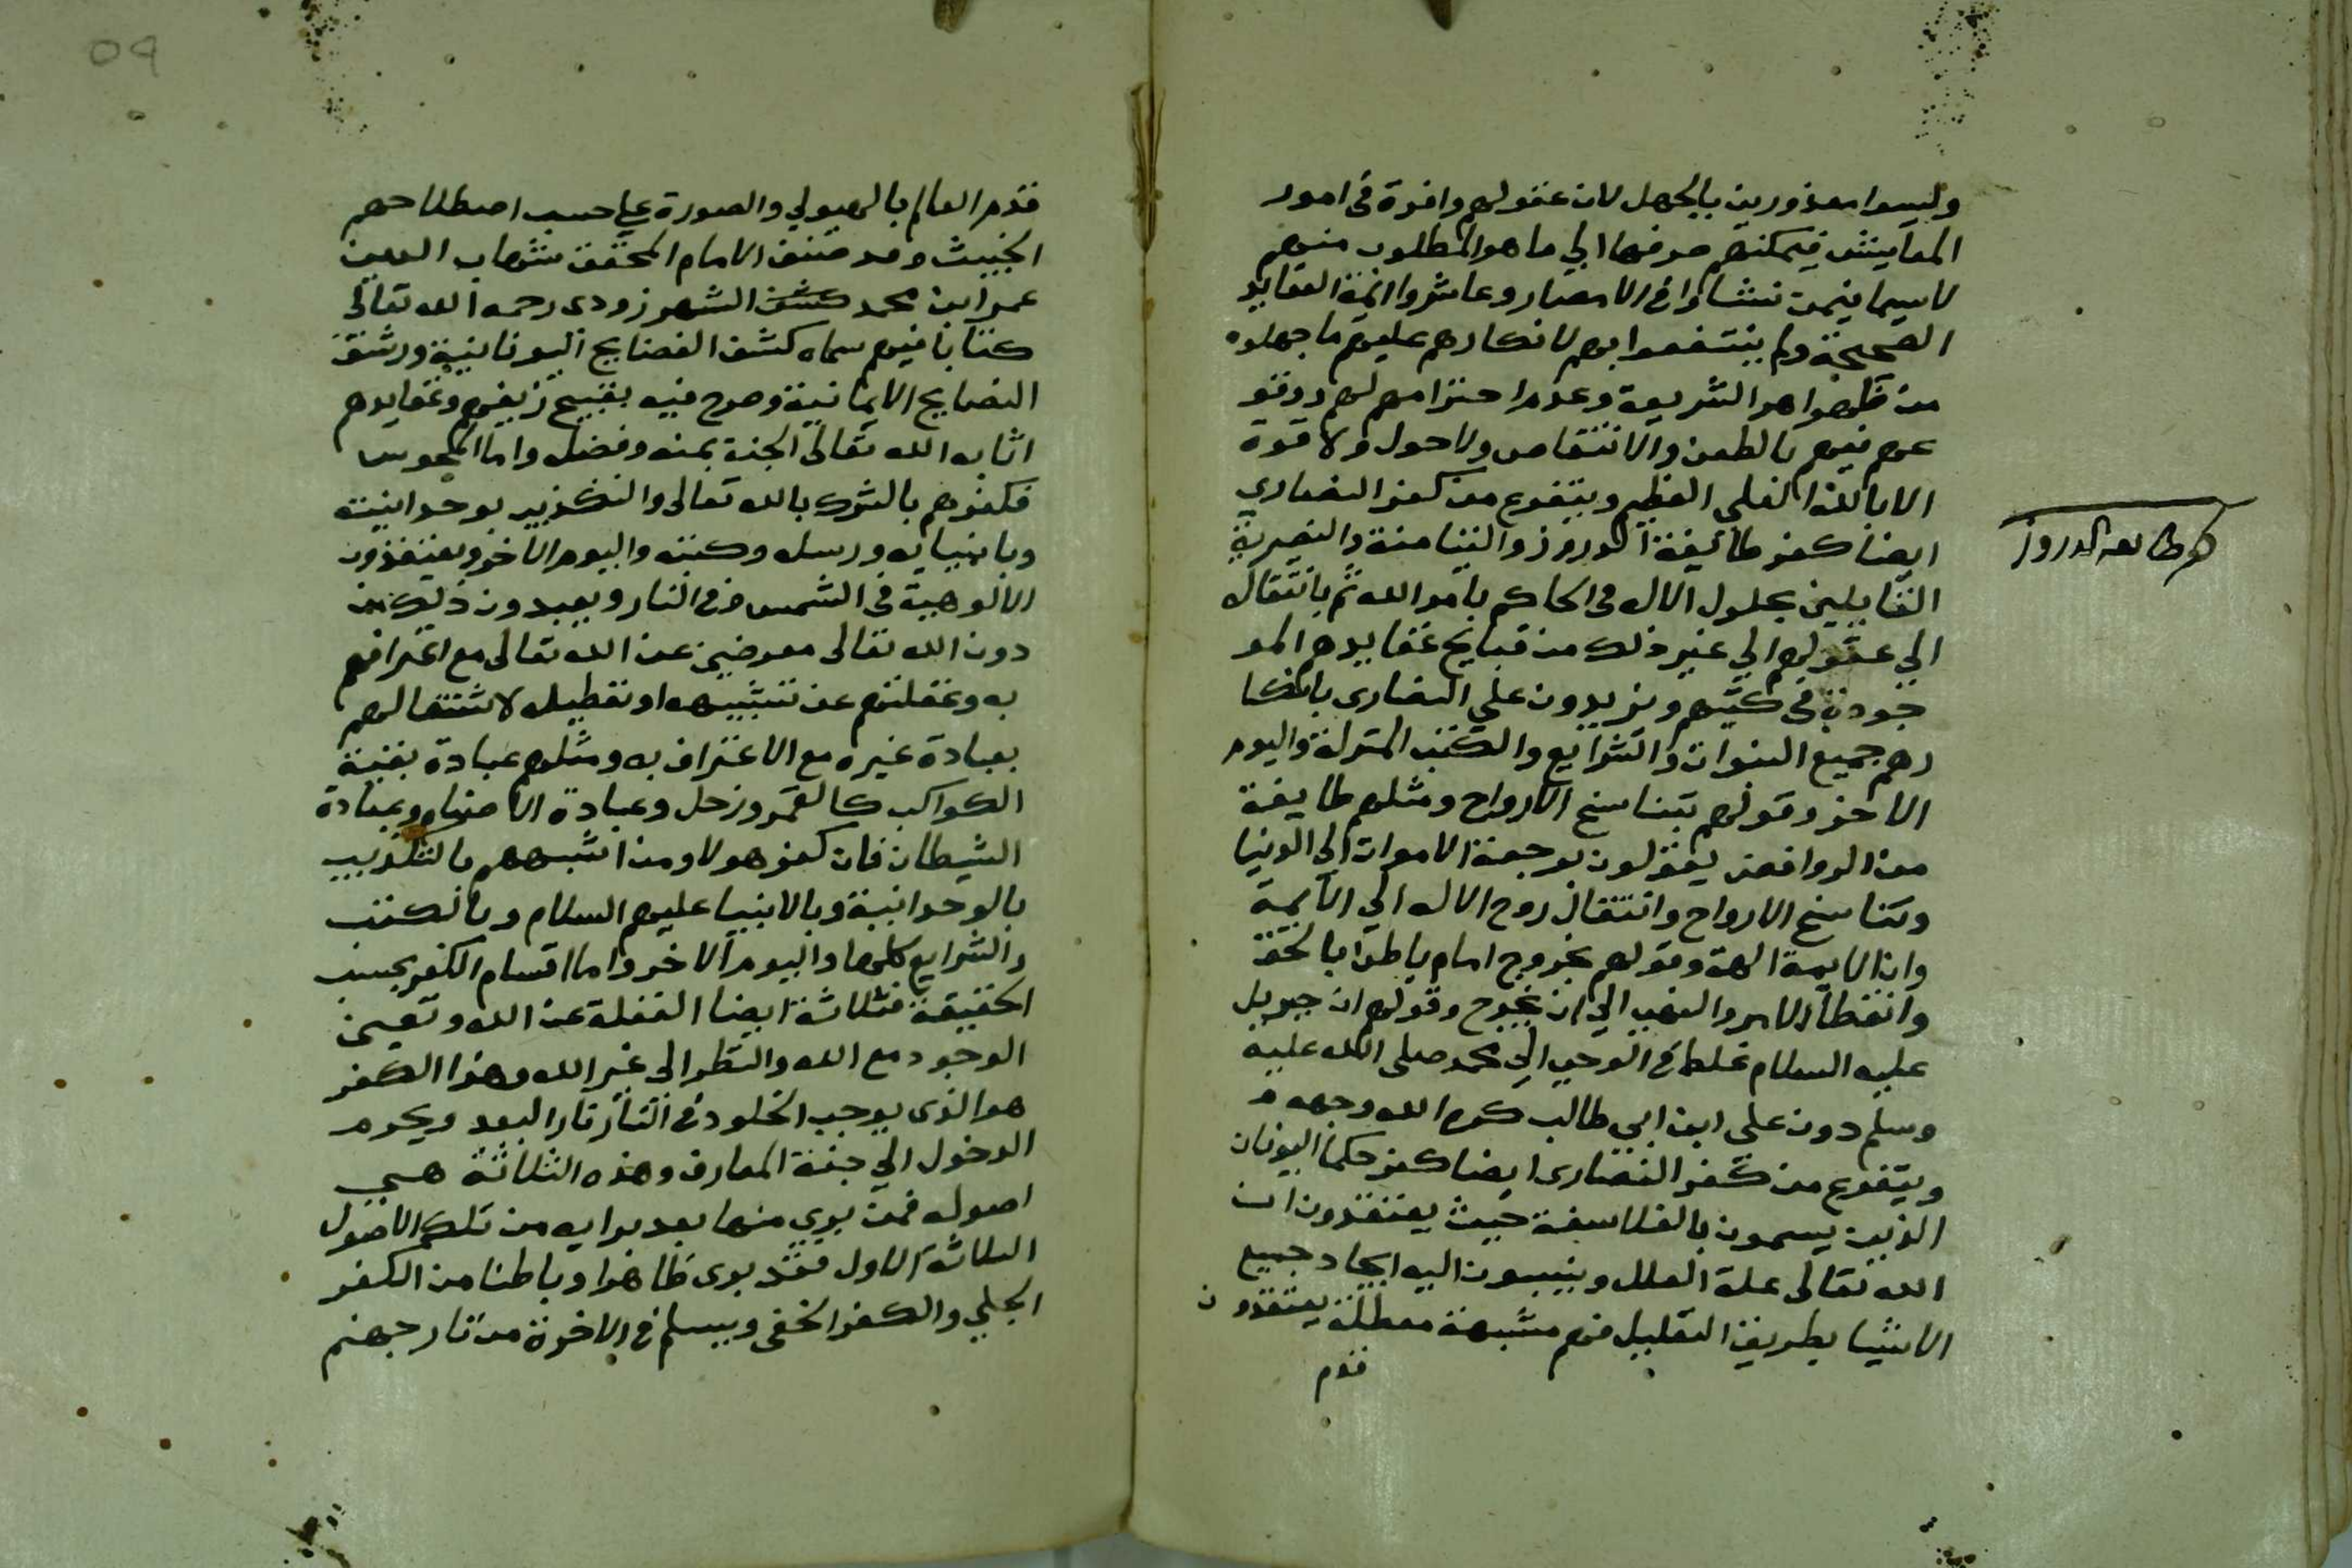 وليسوا معذورين بالجهل لان عقولهم وافرة في امور
المعايش فيمكنهم صرفها الي ما هو المطلوب منهم
لاسيما فيمن نشاوا في الامصار وعاشروا ائمة العقايد
الصحيحة ولم ينتفعوا بهم لانكارهم عليهم ما جهلوه
من ظواهر الشريعة وعدم احترامهم لهم ووقو
عهم فيهم بالطعن والانتقاص ولا حول ولا قوة
الا بالله العلى العظيم ويتفرع من كفر النصاري
ايضا كفر طائيفة الدروز والتيامنة والنصيرية
القايلين بحلول الاله في الحاكم بامر الله ثم بانتقاله
الي عقولهم الي غير ذلك من قبايح عقايدهم المو
جودة في كتبهم ويزيدون على النصارى بانكا
رهم جميع النبوات والشرايع والكتب المنزلة واليوم
الاخر وقولهم بتناسخ الارواح ومثلهم طايفة
من الروافض يقولون برجعة الاموات الي الدنيا
وتناسخ الارواح وانتقال روح الاله الي الايمة
وان الايمة الهة وقولهم بخروج امام باطن بالحق
وانقطاع الامر والنهي الي ان يخرج وقولهم ان جبريل
عليه السلام غلط في الوحي الي محمد صلى الله عليه
وسلم دون على ابن ابي طالب كرم الله وجهه
ويتفرع من كفر النصارى ايضا كفر حكما اليونان
الذين يسمون بالفلاسفة حيث يعتقدون ان
الله تعالى علة العلل وينسبون اليه ايجاد جميع
الاشيا بطريق التعليل فهم مشبهة معطلة يعتقدون
قدم
كفر طايفة الدروز
09
قدم العالم بالهيولي والصورة علي حسب اصطلاحهم
الخبيث وقد صنف الامام المحقق شهاب الدين
عمر ابن محمد كشف الشهرزودى رحمه الله تعالى
كتابا فيهم سماه كشف الفضايح اليونانية ورشق
النصايح الايمانية وصرح فيه بقبيح زيغهم وعقايدهم
اثابه الله تعالى الجنة بمنه وفضله واما المجوس
فكفرهم بالشرك بالله تعالى والتكذيب بوحدانيته
وبانبيايه ورسله وكتبه واليوم الاخر ويعتقدون
الالوهية في الشمس وفي النار ويعبدون ذلك من
دون الله تعالى معرضين عن الله تعالى مع اعترافهم
به وغفلتهم عن تشبيهه او تعطيله لاشتغالهم
بعبادة غيره مع الاعتراف به ومثلهم عبادة بقية
الكواكب كالقمر وزحل وعبادة الاصنام وعبادة
الشيطان فان كفر هولا ومن اشبههم بالتكذيب
بالوحدانية وبالانبيا عليهم السلام وبالكتب
والشرايع كلها واليوم الاخر واما اقسام الكفر بحسب
الحقيقة فثلاثة ايضا الغفلة عن الله وتعين
الوجود مع الله والنظر الى غير الله وهذا الكفر
هو الذى يوجب الخلود في النار نار البعد ويحرم
الدخول الي جنة المعارف وهذه الثلاثة هي
اصوله فمن بوي منها بعد برايه من تلك الاصول
الثلاثة الاول فقد بوى ظاهرا وباطنا من الكفر
الجلي والكفر الخفى ويسلم في الاخرة من نار جهنم